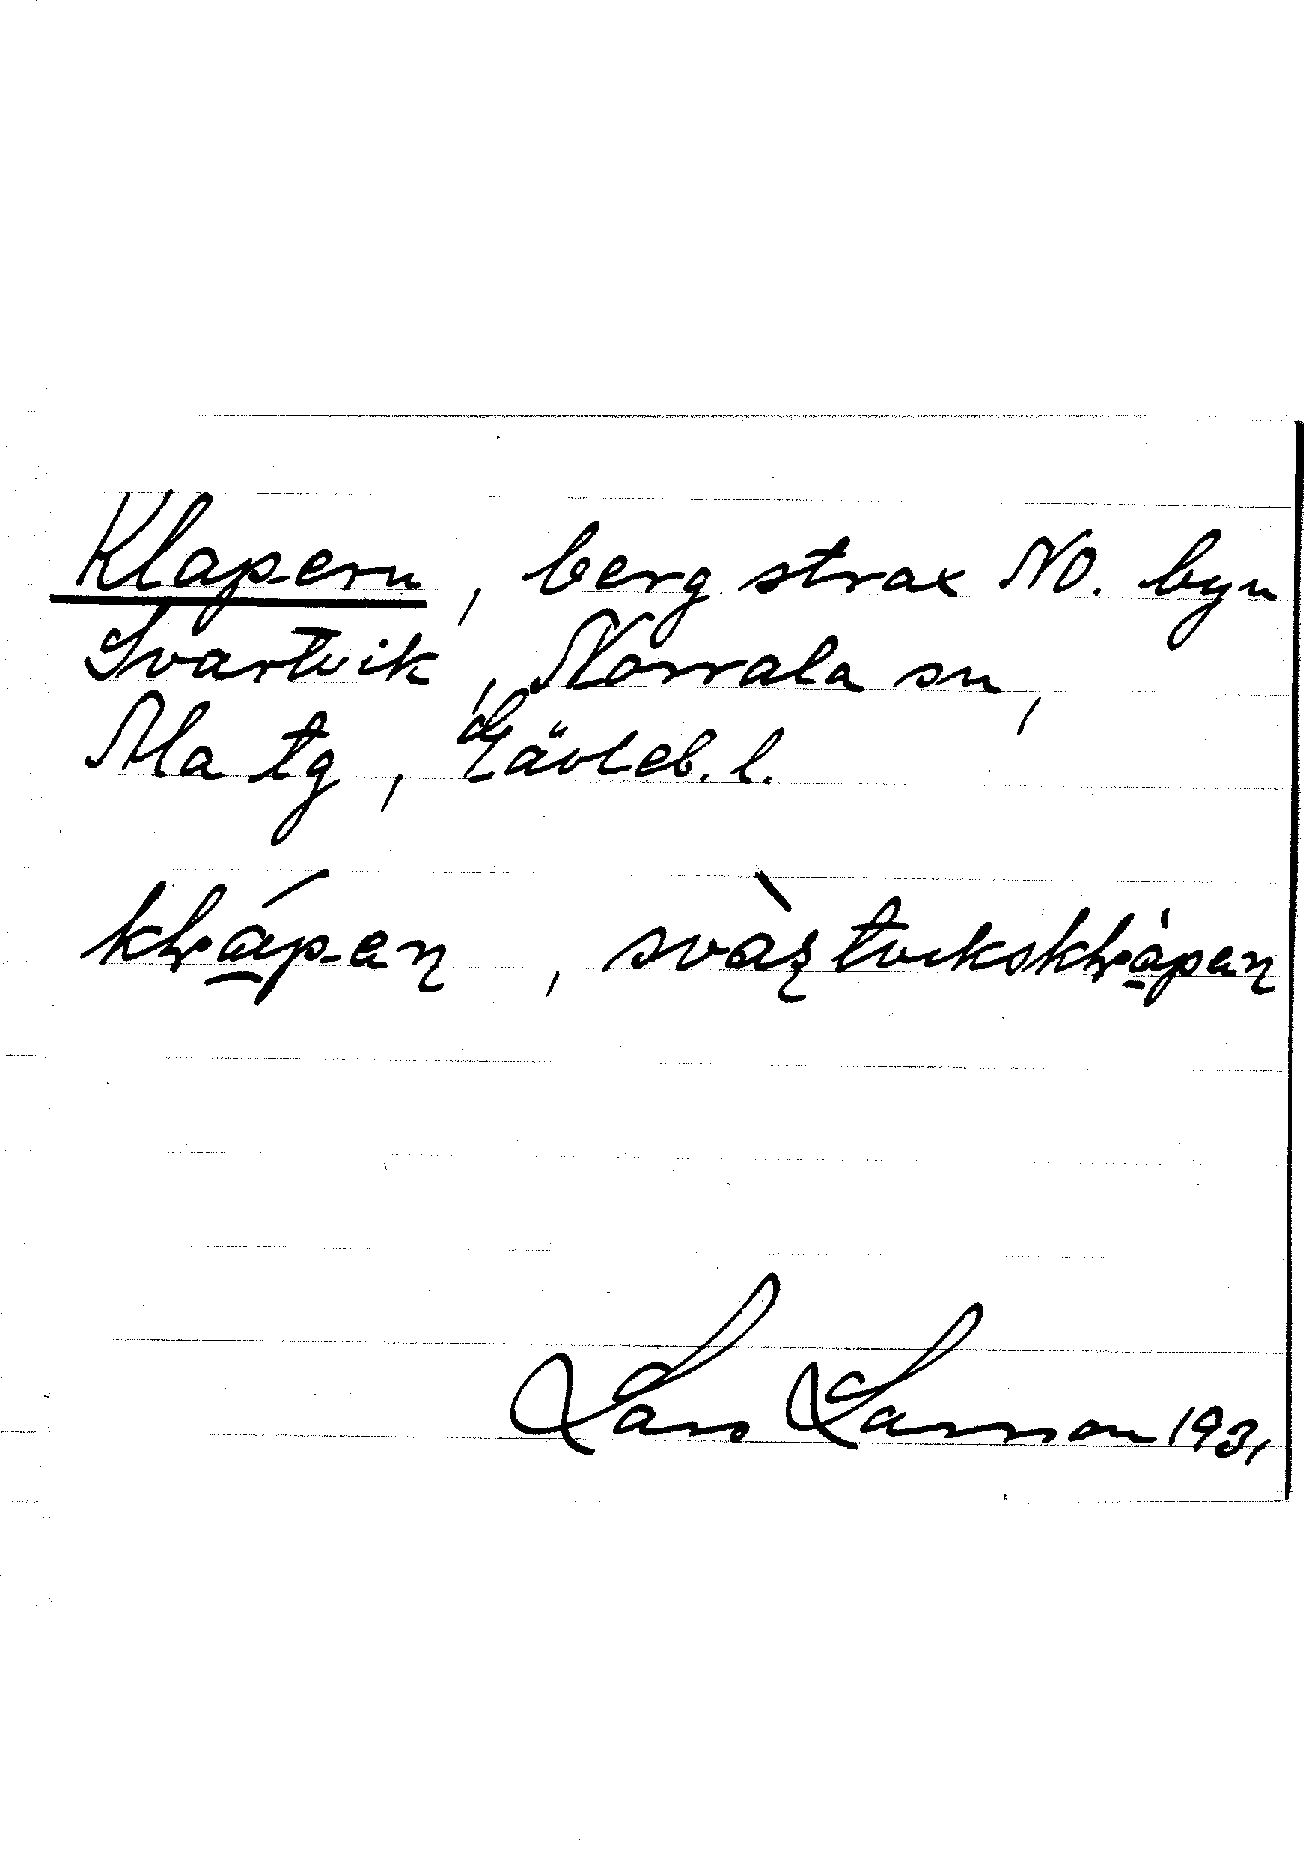 Klapern, berg strax NO. byn
Svartvik, Norrala sn,
Ala tg, Gävleb. l.
Lars Larsson 1931